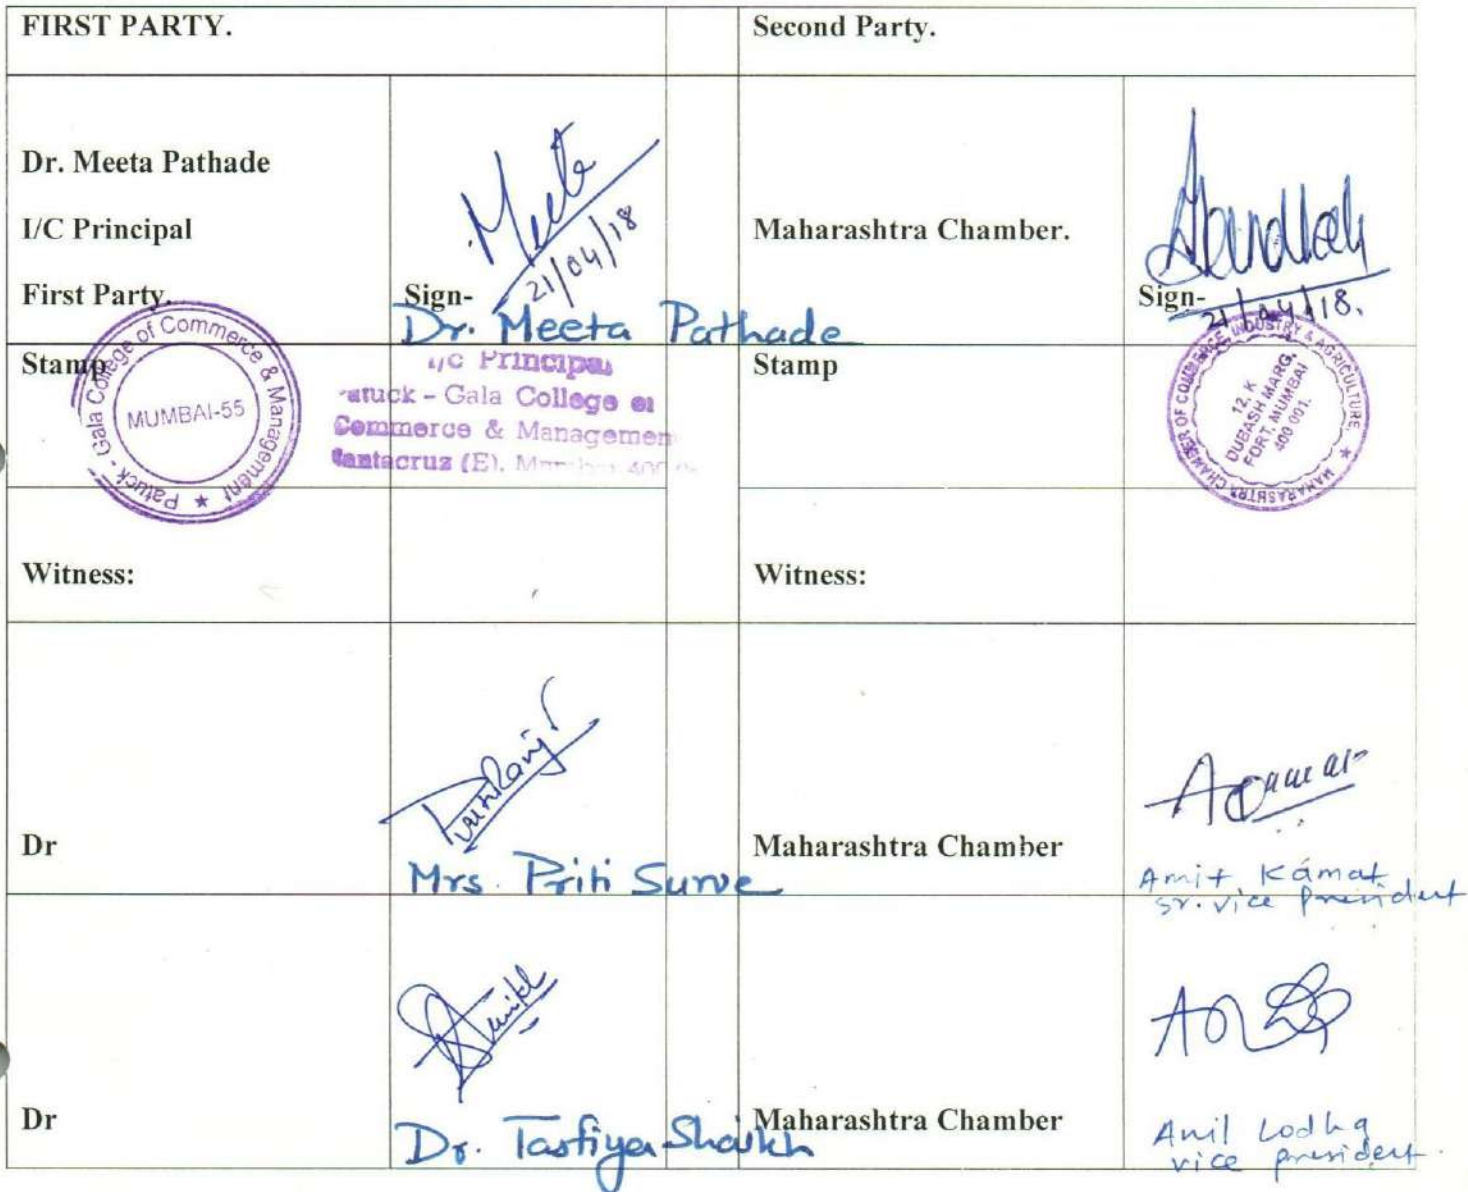 FIRST PARTY.
Second Party.
Dr. Meeta Pathade
I/C Principal
First Party.
Meeta
21/04/18
Sign-
Dr. Meeta Pathade
Maharashtra Chamber.
Sign-
21/04/18.
Stamp
Patuck - Gala College of Commerce & Management ★
MUMBAI-55
I/C Principal
atuck - Gala College of
Commerce & Managemen
Santacruz (E), Mumbai 400
Stamp
MAHARASHTRA CHAMBER OF COMMERCE, INDUSTRY & AGRICULTURE ★
12, K
DUBASH MARG,
FORT, MUMBAI
400 001.
Witness:
Witness:
Dr
Mrs. Priti Surve
Maharashtra Chamber
Amit Kamat
Sr. vice president
Dr
Dr. Tasfiya Shaikh
Maharashtra Chamber
Anil Lodha
vice president